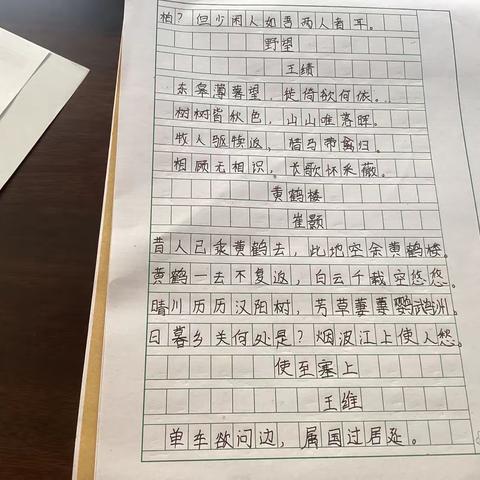 柏？但少闲人如吾两人者耳。
野望
王绩
东皋薄暮望，徙倚欲何依。
树树皆秋色，山山唯落晖。
牧人驱犊返，猎马带禽归。
相顾无相识，长歌怀采薇。
黄鹤楼
崔颢
昔人已乘黄鹤去，此地空余黄鹤楼。
黄鹤一去不复返，白云千载空悠悠。
晴川历历汉阳树，芳草萋萋鹦鹉洲。
日暮乡关何处是？烟波江上使人愁。
使至塞上
王维
单车欲问边，属国过居延。